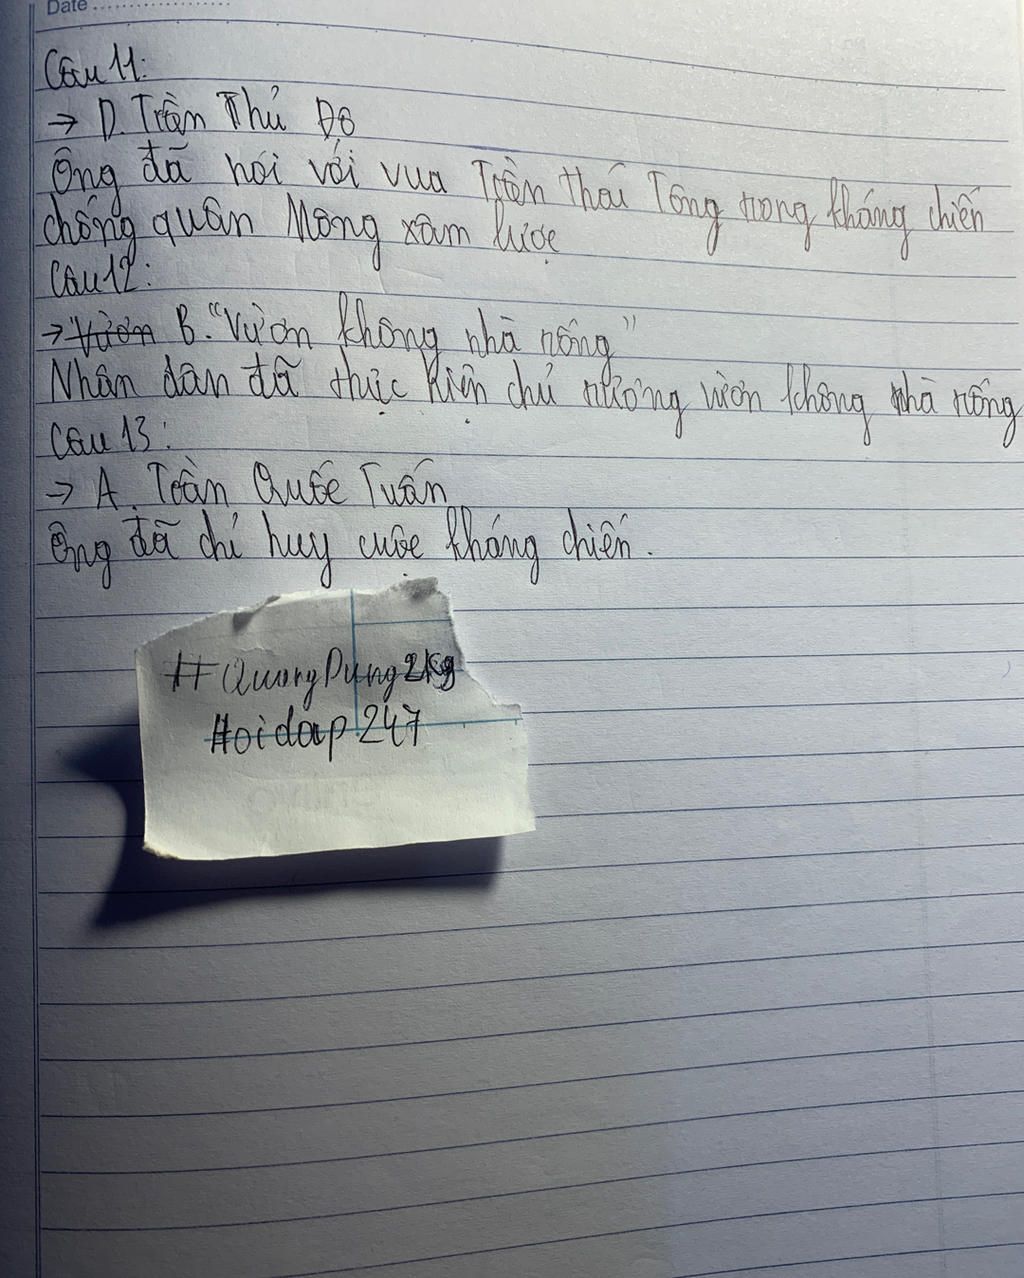 Date
Câu 11:
→ D. Trần Thủ Độ
Ông đã nói với vua Trần Thái Tông trong kháng chiến
chống quân Mông xâm lược
Câu 12:
→ "Vườn B. "Vườn không nhà nống"
Nhân dân đã thực hiện chủ trương vườn không nhà nống
Câu 13:
→ A. Trần Quốc Tuấn
Ông đã chỉ huy cuộc kháng chiến.
#QuangDung2kg
Hoidap247